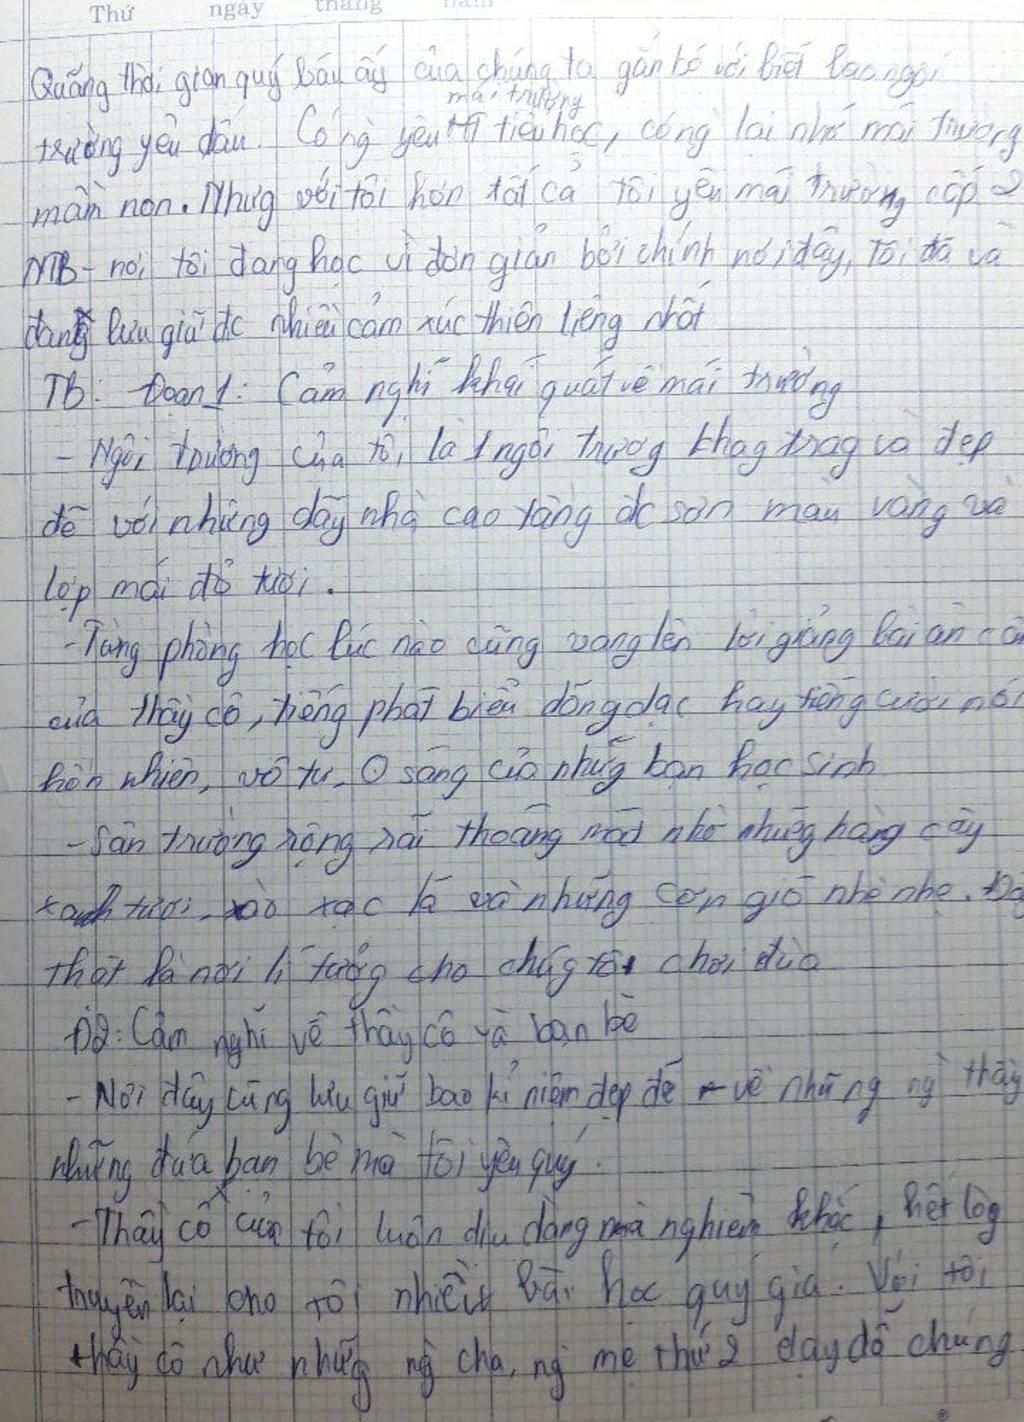 Thứ ngày tháng năm
Quãng thời gian quý báu ấy của chúng ta gắn bó với biết bao ngôi
mái trường
trường yêu dấu. Có ng yêu tiểu học, có ng lại nhớ mái trường
mầm non. Nhưg với tôi hơn tất cả tôi yêu mái trường cấp 2
MB - nơi tôi đang học vì đơn giản bởi chính nơi đây, tôi đã và
đang lưu giữ đc nhiều cảm xúc thiên liêng nhất
TB: Đoạn 1: Cảm nghĩ khái quát về mái trường
- Ngôi trường của tôi là 1 ngôi trườg khag trag và đẹp
đẽ với những dãy nhà cao tầng đc sơn màu vàng và
lợp mái đỏ tươi.
- Từng phòng học lúc nào cũng vang lên lời giảng bài ân cần
của thầy cô, tiếng phát biểu dõng dạc hay tiếng cười nói
hồn nhiên, vô tư, O sáng của nhữg bạn học sinh
- Sân trường rộng rãi thoáng mát nhờ nhữg hàng cây
xanh tươi, xào xạc lá và những cơn gió nhè nhẹ. Đây
thật là nơi lí tưởg cho chúg tôi chơi đùa
Đ2: Cảm nghĩ về thầy cô và bạn bè
- Nơi đây cũng lưu giữ bao kỉ niệm đẹp đẽ về những ng thầy
những đứa bạn bè mà tôi yêu quý.
- Thầy cô của tôi luôn dịu dàng mà nghiêm khắc, hết lòg
truyền lại cho tôi nhiều bài học quý giá. Với tôi
thầy cô như nhữg ng cha, ng mẹ thứ 2 dạy dỗ chúng